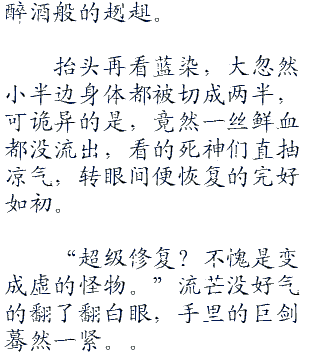 醉酒般的趔趄。
抬头再看蓝染，大忽然
小半边身体都被切成两半，
可诡异的是，竟然一丝鲜血
都没流出，看的死神们直抽
凉气，转眼间便恢复的完好
如初。
“超级修复？不愧是变
成虚的怪物。”流芒没好气
的翻了翻白眼，手里的巨剑
蓦然一紧。。